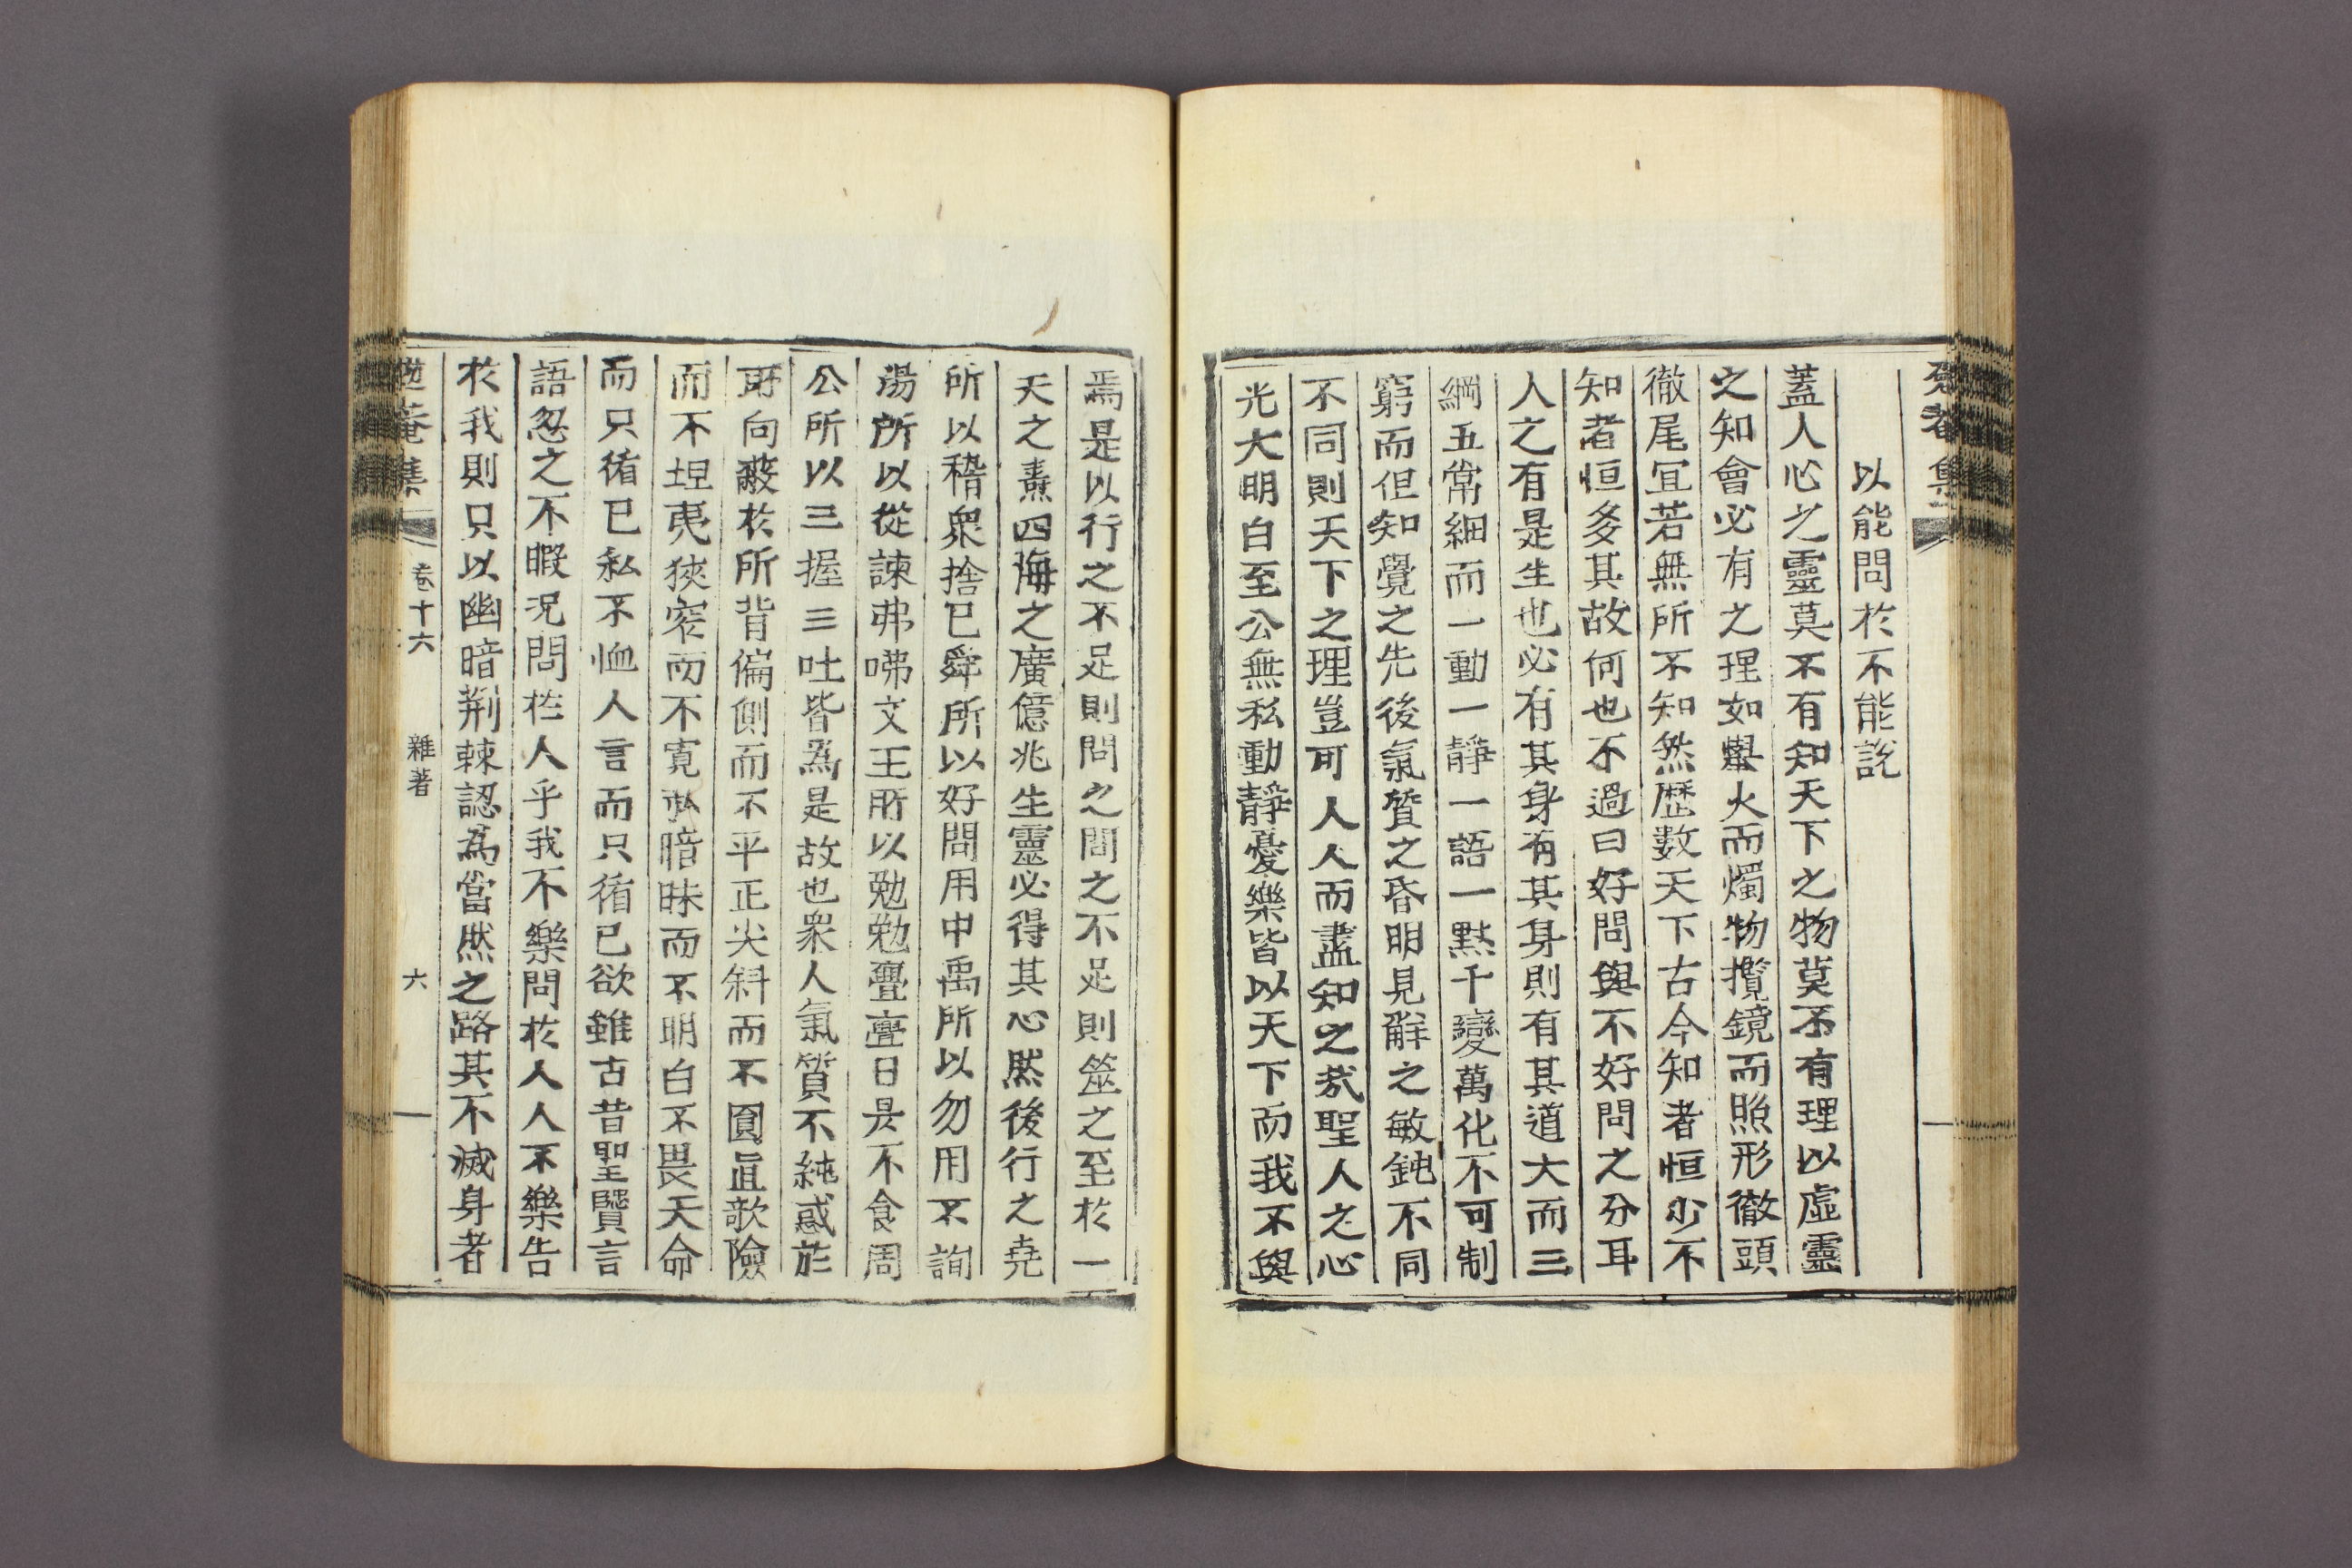 以能問於不能說
蓋人心之靈莫不有知天下之物莫不有理以虛靈
之知會必有之理如擧火而燭物攬鏡而照形徹頭
徹尾宜若無所不知然歷数天下古今知者恒少不
知者恒多其故何也不過曰好問與不好問之分耳
人之有是生也必有其身有其身則有其道大而三
綱五常細而一動一靜一語一黙千變萬化不可制
窮而但知覺之先後氣質之昏明見解之敏鈍不同
不同則天下之理豈可人人而盡知之哉聖人之心
光大明白至公無私動靜憂樂皆以天下而我不與
焉是以行之不足則問之問之不足則筮之至於一
天之燾四海之廣億兆生靈必得其心然後行之堯
所以稽衆捨已舜所以好問用中禹所以勿用不詢
湯所以從諫弗咈文王所以勉勉亹亹日昃不食周
公所以三握三吐皆爲是故也衆人氣質不純惑於
所向蔽於所背偏側而不平正尖斜而不圓直欹險
而不坦夷狹窄而不寬弘暗昧而不明白不畏天命
而只循已私不恤人言而只循已欲雖古昔聖賢言
語忽之不暇况問於人乎我不樂問於人人不樂告
於我則只以幽暗荆棘認爲當然之路其不滅身者
菴集 卷十六 雜著 六